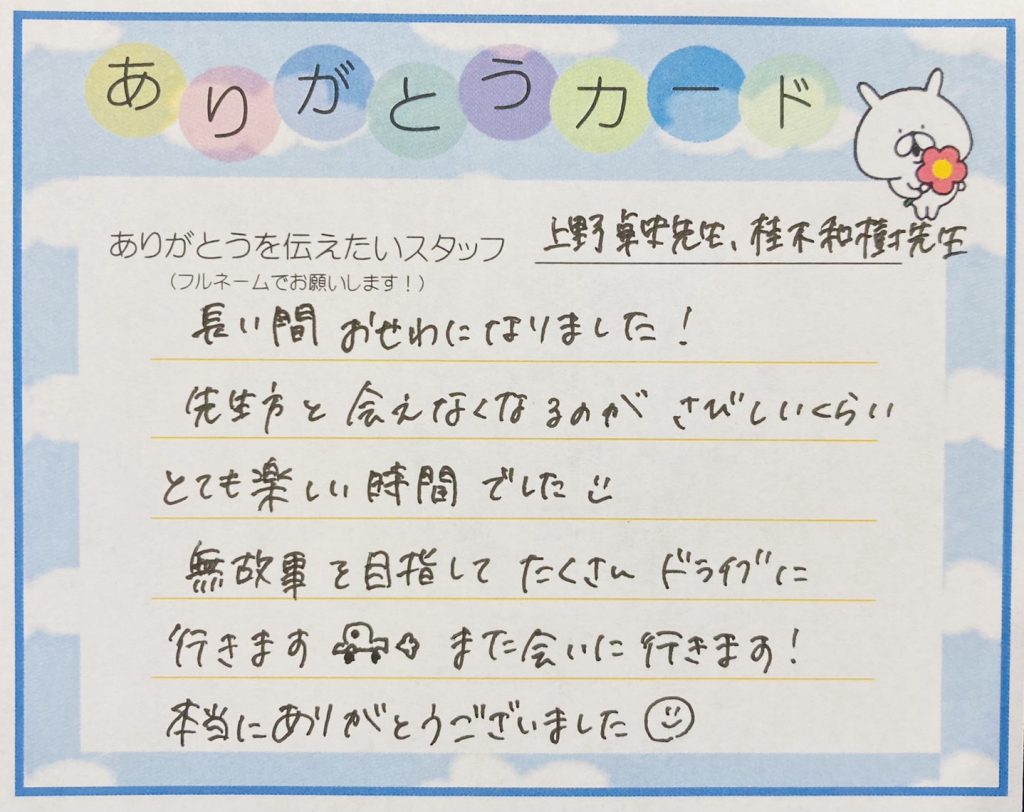 ありがとうカード
ありがとうを伝えたいスタッフ 上野卓史先生、桂木和樹先生
（フルネームでお願いします！）
長い間 おせわになりました！
先生方と会えなくなるのが さびしいくらい
とても楽しい時間でした
無故事を目指して たくさん ドライブに
行きます また会いに行きます！
本当にありがとうございました